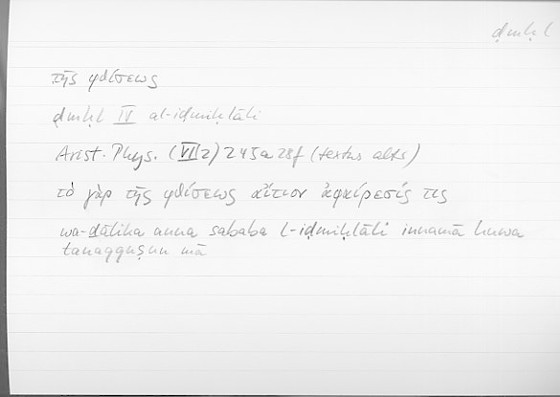 ḍmḥl
τῆς φθίσεως
ḍmḥl IV al-iḍmiḥlāli
Arist. Phys. (VII 2) 245a 28f (textus alt.)
τὸ γὰρ τῆς φθίσεως αἴτιον ἀφαίρεσίς τις
wa-ḏālika anna sababa l-iḍmiḥlāli innamā huwa
tanaqquṣun mā